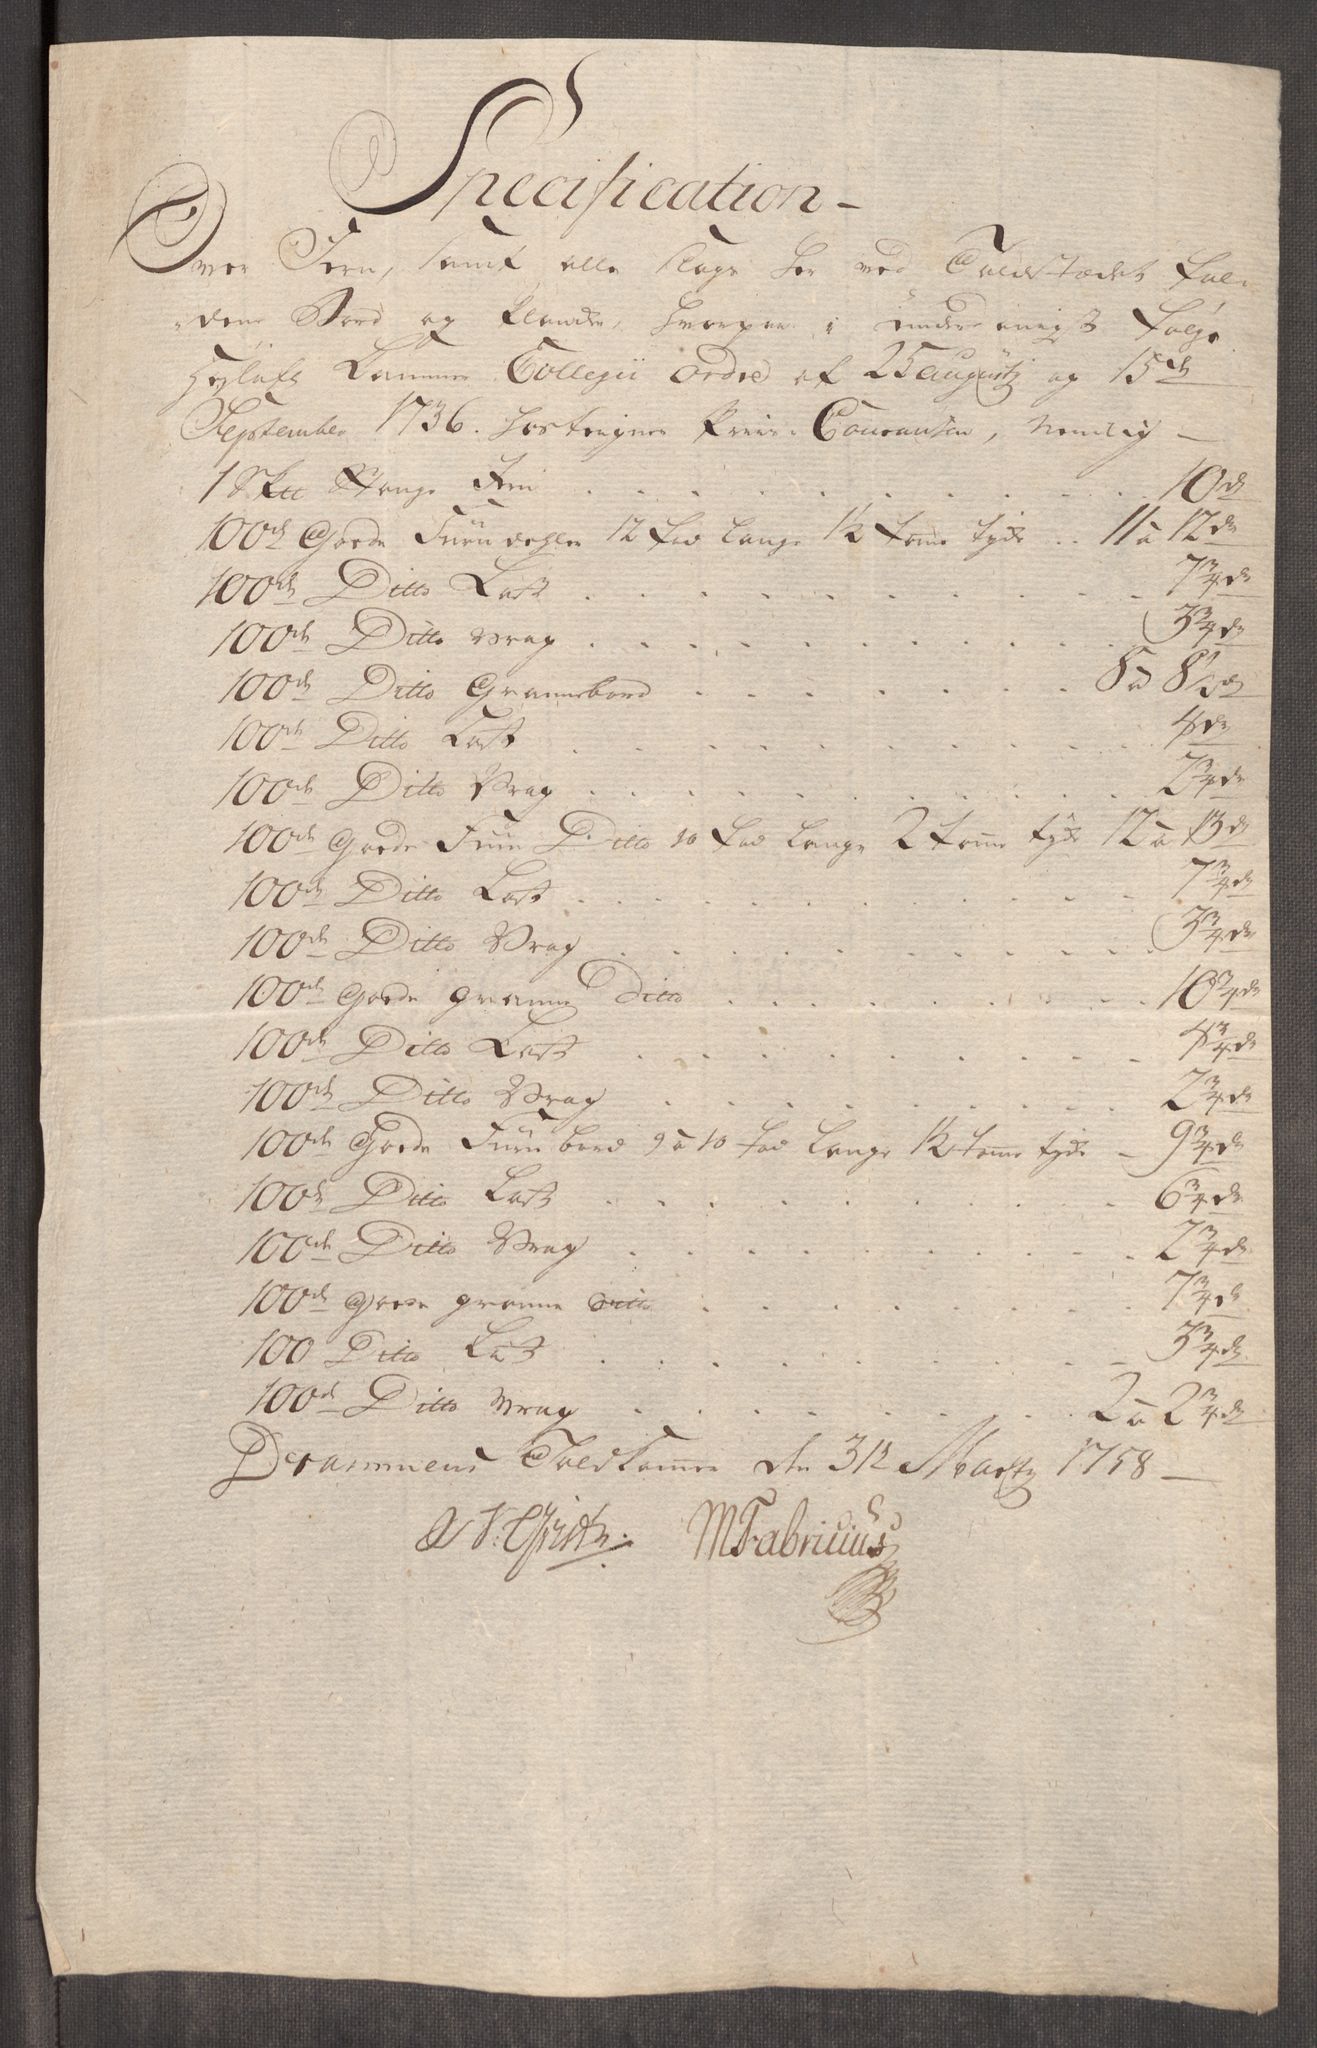 Specification –
Over Jern, samt alle slags her ved Toldstædet fal-
dene Bord og Planker, hvorpaa i underdanigst Følge
Høylofl: Kammer Collegii Ordre af 25 Augustj og 15de
September 1736. hostegnes Priis Couranten, Nemlig –
1 Sk℔ Stange Jern . . . . . 10 rd
100de Goede Furu dehler 12 fod lange 1½ tomme tyk .. 11 a 12 rd
100de Ditto Last . . . . . 7¾ rd
100de Ditto Vrag . . . . . 3¾ rd
100de Ditto Grannebord . . . . . 8 a 8½ rd
100de Ditto Last . . . . . 4 rd
100de Ditto Vrag . . . . . 2¾ rd
100de Goede Furu Ditto 10 fod lange 2 tomme tyk 12 a 13 rd
100de Ditto Last . . . . . 7¾ rd
100de Ditto Vrag . . . . . 3¾ rd
100de Goede granne Ditto . . . . . 10¾ rd
100de Ditto Last . . . . . 4¾ rd
100de Ditto Vrag . . . . . 2¾ rd
100de Goede Furu bord 9 a 10 fod lange 1½ tomme tyk – 9¾ rd
100de Ditto Last . . . . . 6¾ rd
100de Ditto Vrag . . . . . 2¾ rd
100de Goede granne Ditto . . . . . 7¾ rd
100 Ditto Last . . . . . 3¾ rd
100de Ditto Vrag . . . . . 2 a 2¾ rd
Drammens Toldkammer den 31te Martz 1758 –
MFabricius